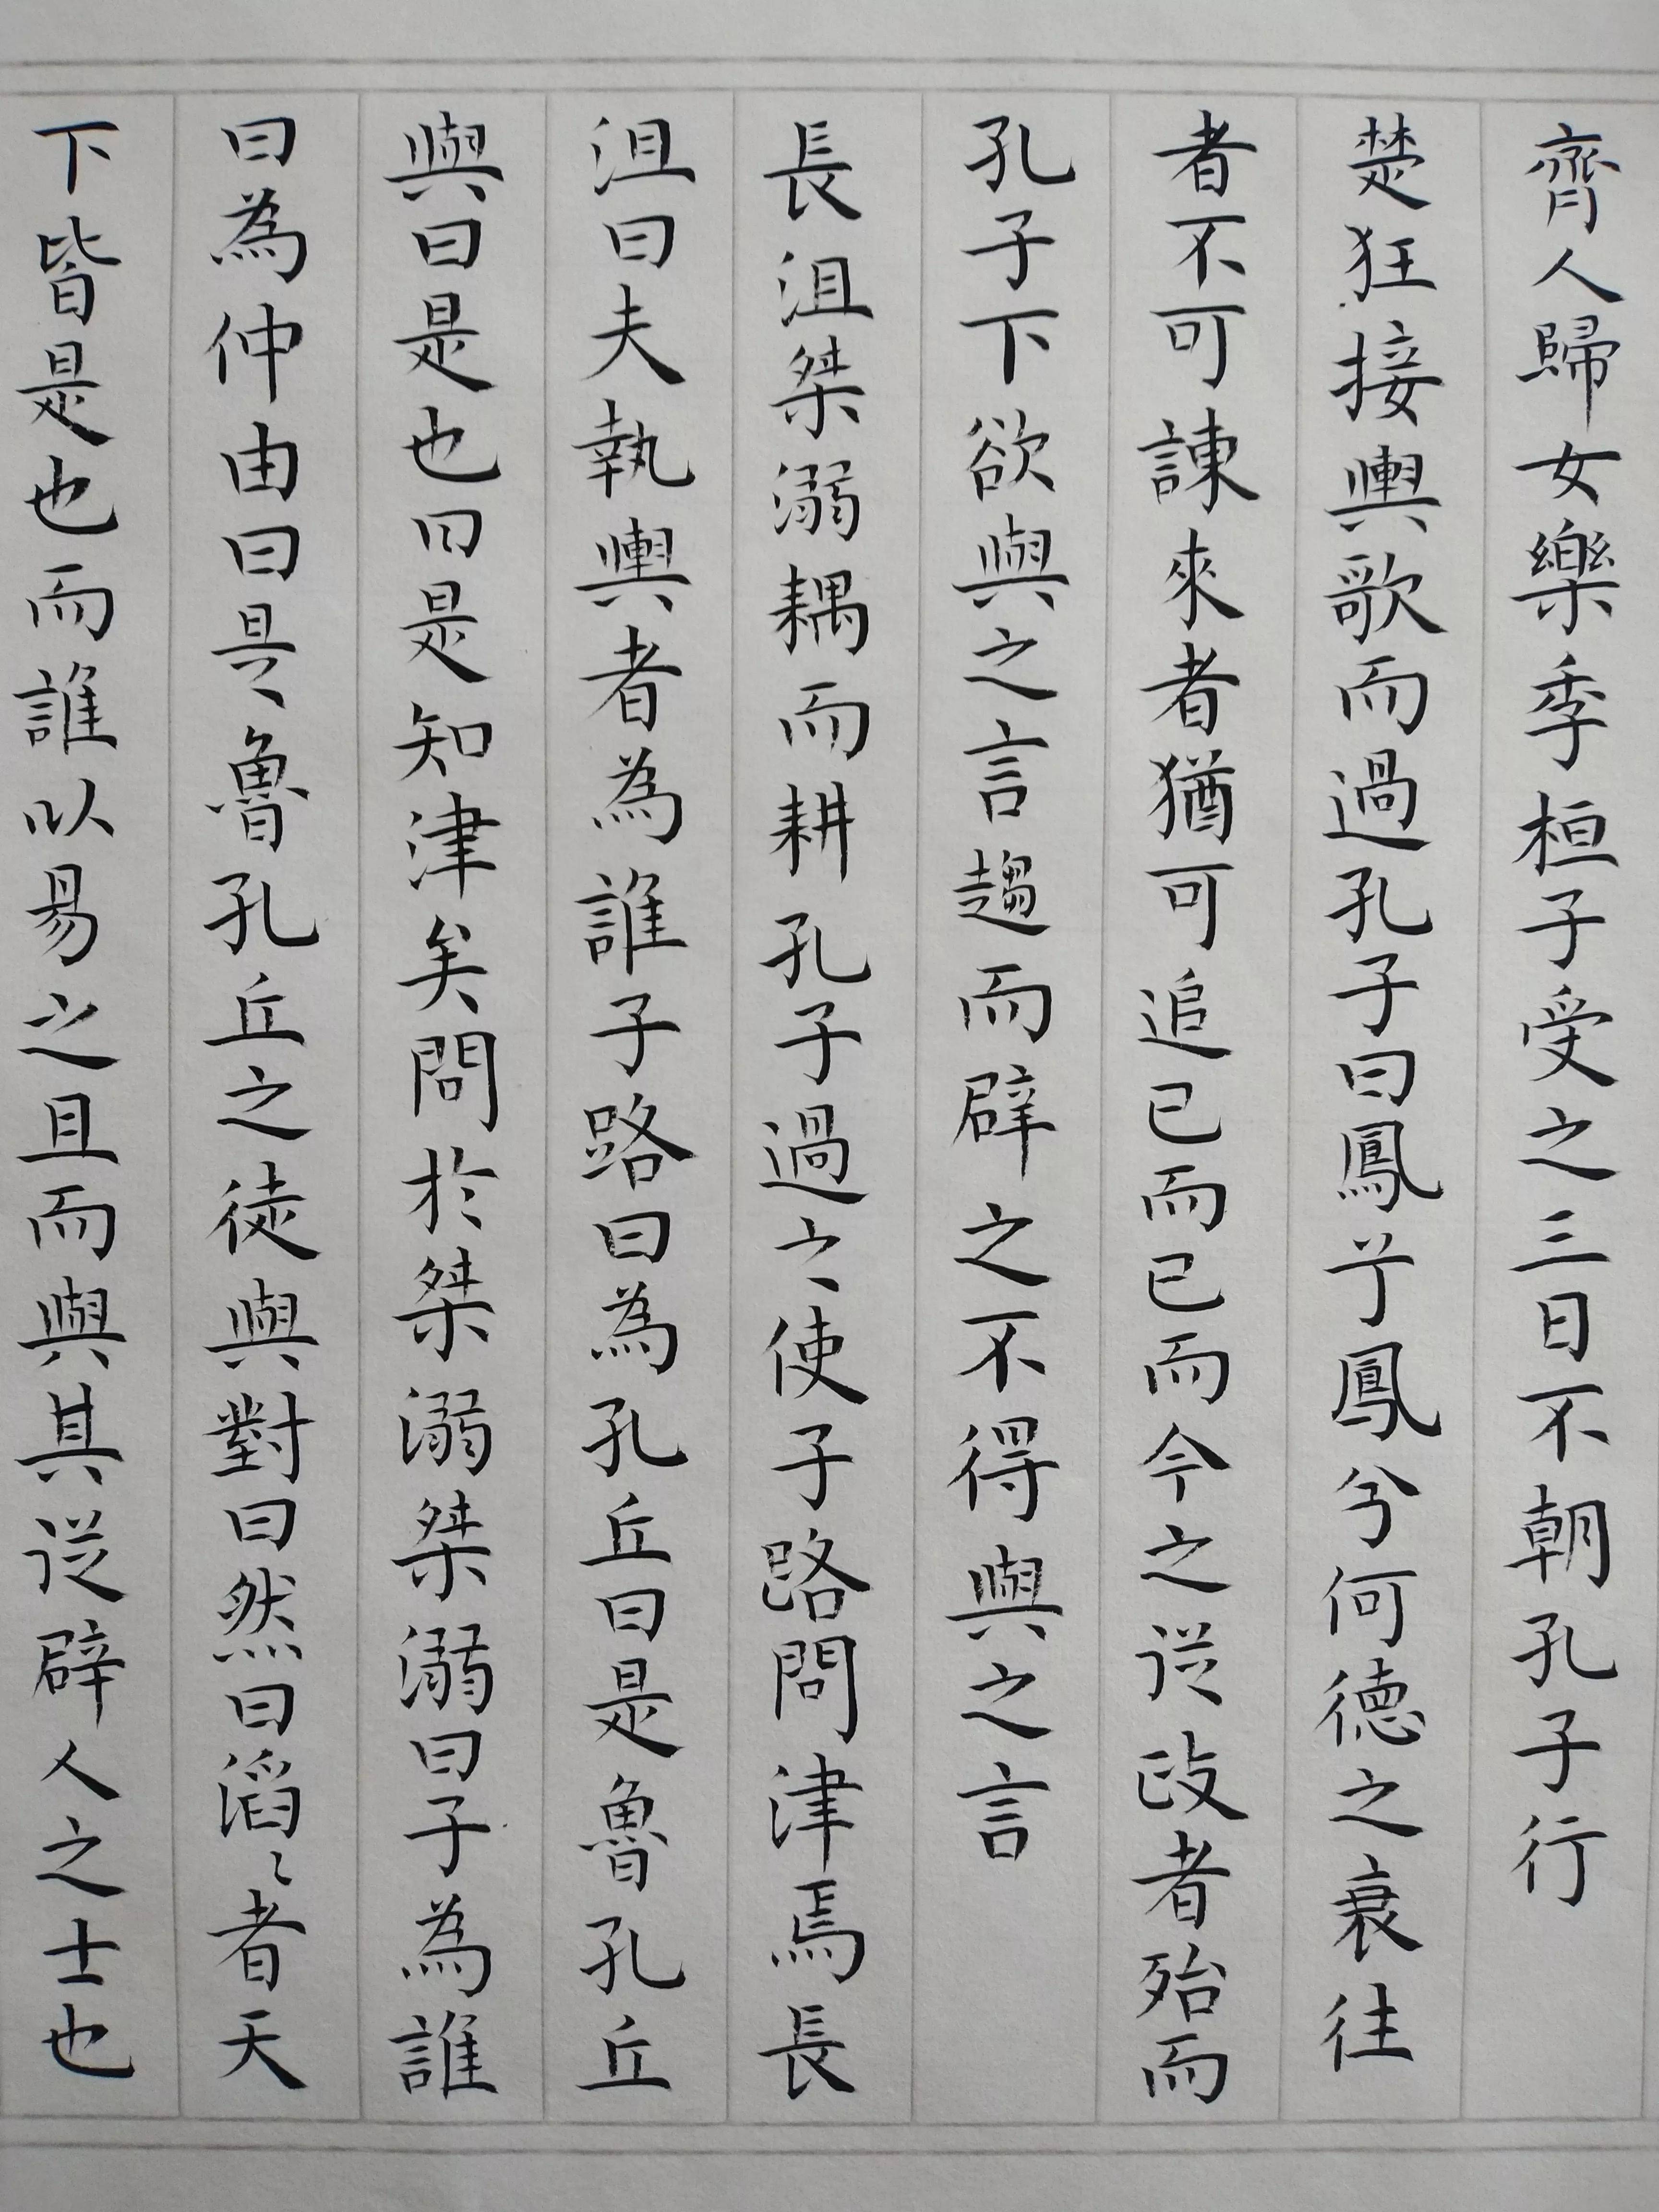 齊人歸女樂季桓子受之三日不朝孔子行
楚狂接輿歌而過孔子曰鳳兮鳳兮何德之衰往
者不可諫來者猶可追已而已而今之從政者殆而
孔子下欲與之言趨而辟之不得與之言
長沮桀溺耦而耕孔子過之使子路問津焉長
沮曰夫執輿者為誰子路曰為孔丘曰是魯孔丘
與曰是也曰是知津矣問於桀溺桀溺曰子為誰
曰為仲由曰是魯孔丘之徒與對曰然曰滔〻者天
下皆是也而誰以易之且而與其從辟人之士也